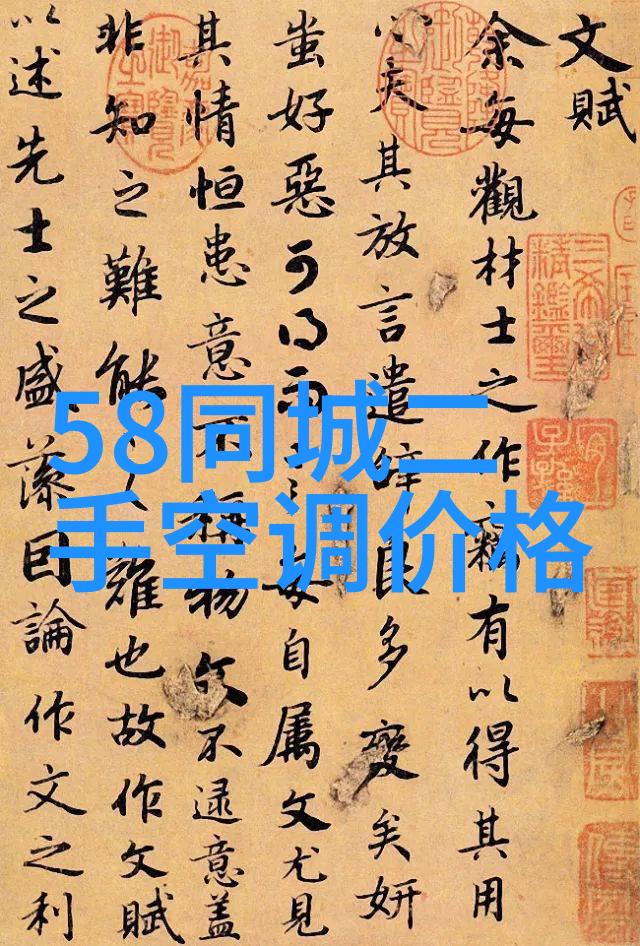 文賦
余每觀材士之作竊有以得其用
心夫其放言遣辞良多變矣妍
蚩好惡可得而言每自属文尤見
其情恒患意不稱物文不逮意蓋
非知之難能之難也故作文賦
以述先士之盛藻因論作文之利
58同城二
手空调价格
三希堂
精鑑璽
宜
子孫